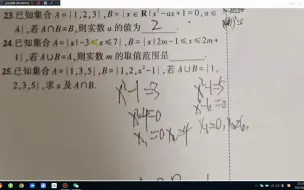 23.已知集合A={1,2,3},B={x∈R|x²-ax+1=0,a∈
A},若A∩B=B,则实数a的值为 2 .
24.已知集合A={x|-3≤x≤7},B={x|2m-1≤x≤2m+
1},若A∪B=A,则实数m的取值范围是
25.已知集合A={1,3,5},B={1,2,x²-1},若A∪B={1,
2,3,5},求x及A∩B.
x²-1=3
x²-4=0
x₁=0 x₂=4
x²-1=5
x²-6=0
x₁=0, x₂=6.